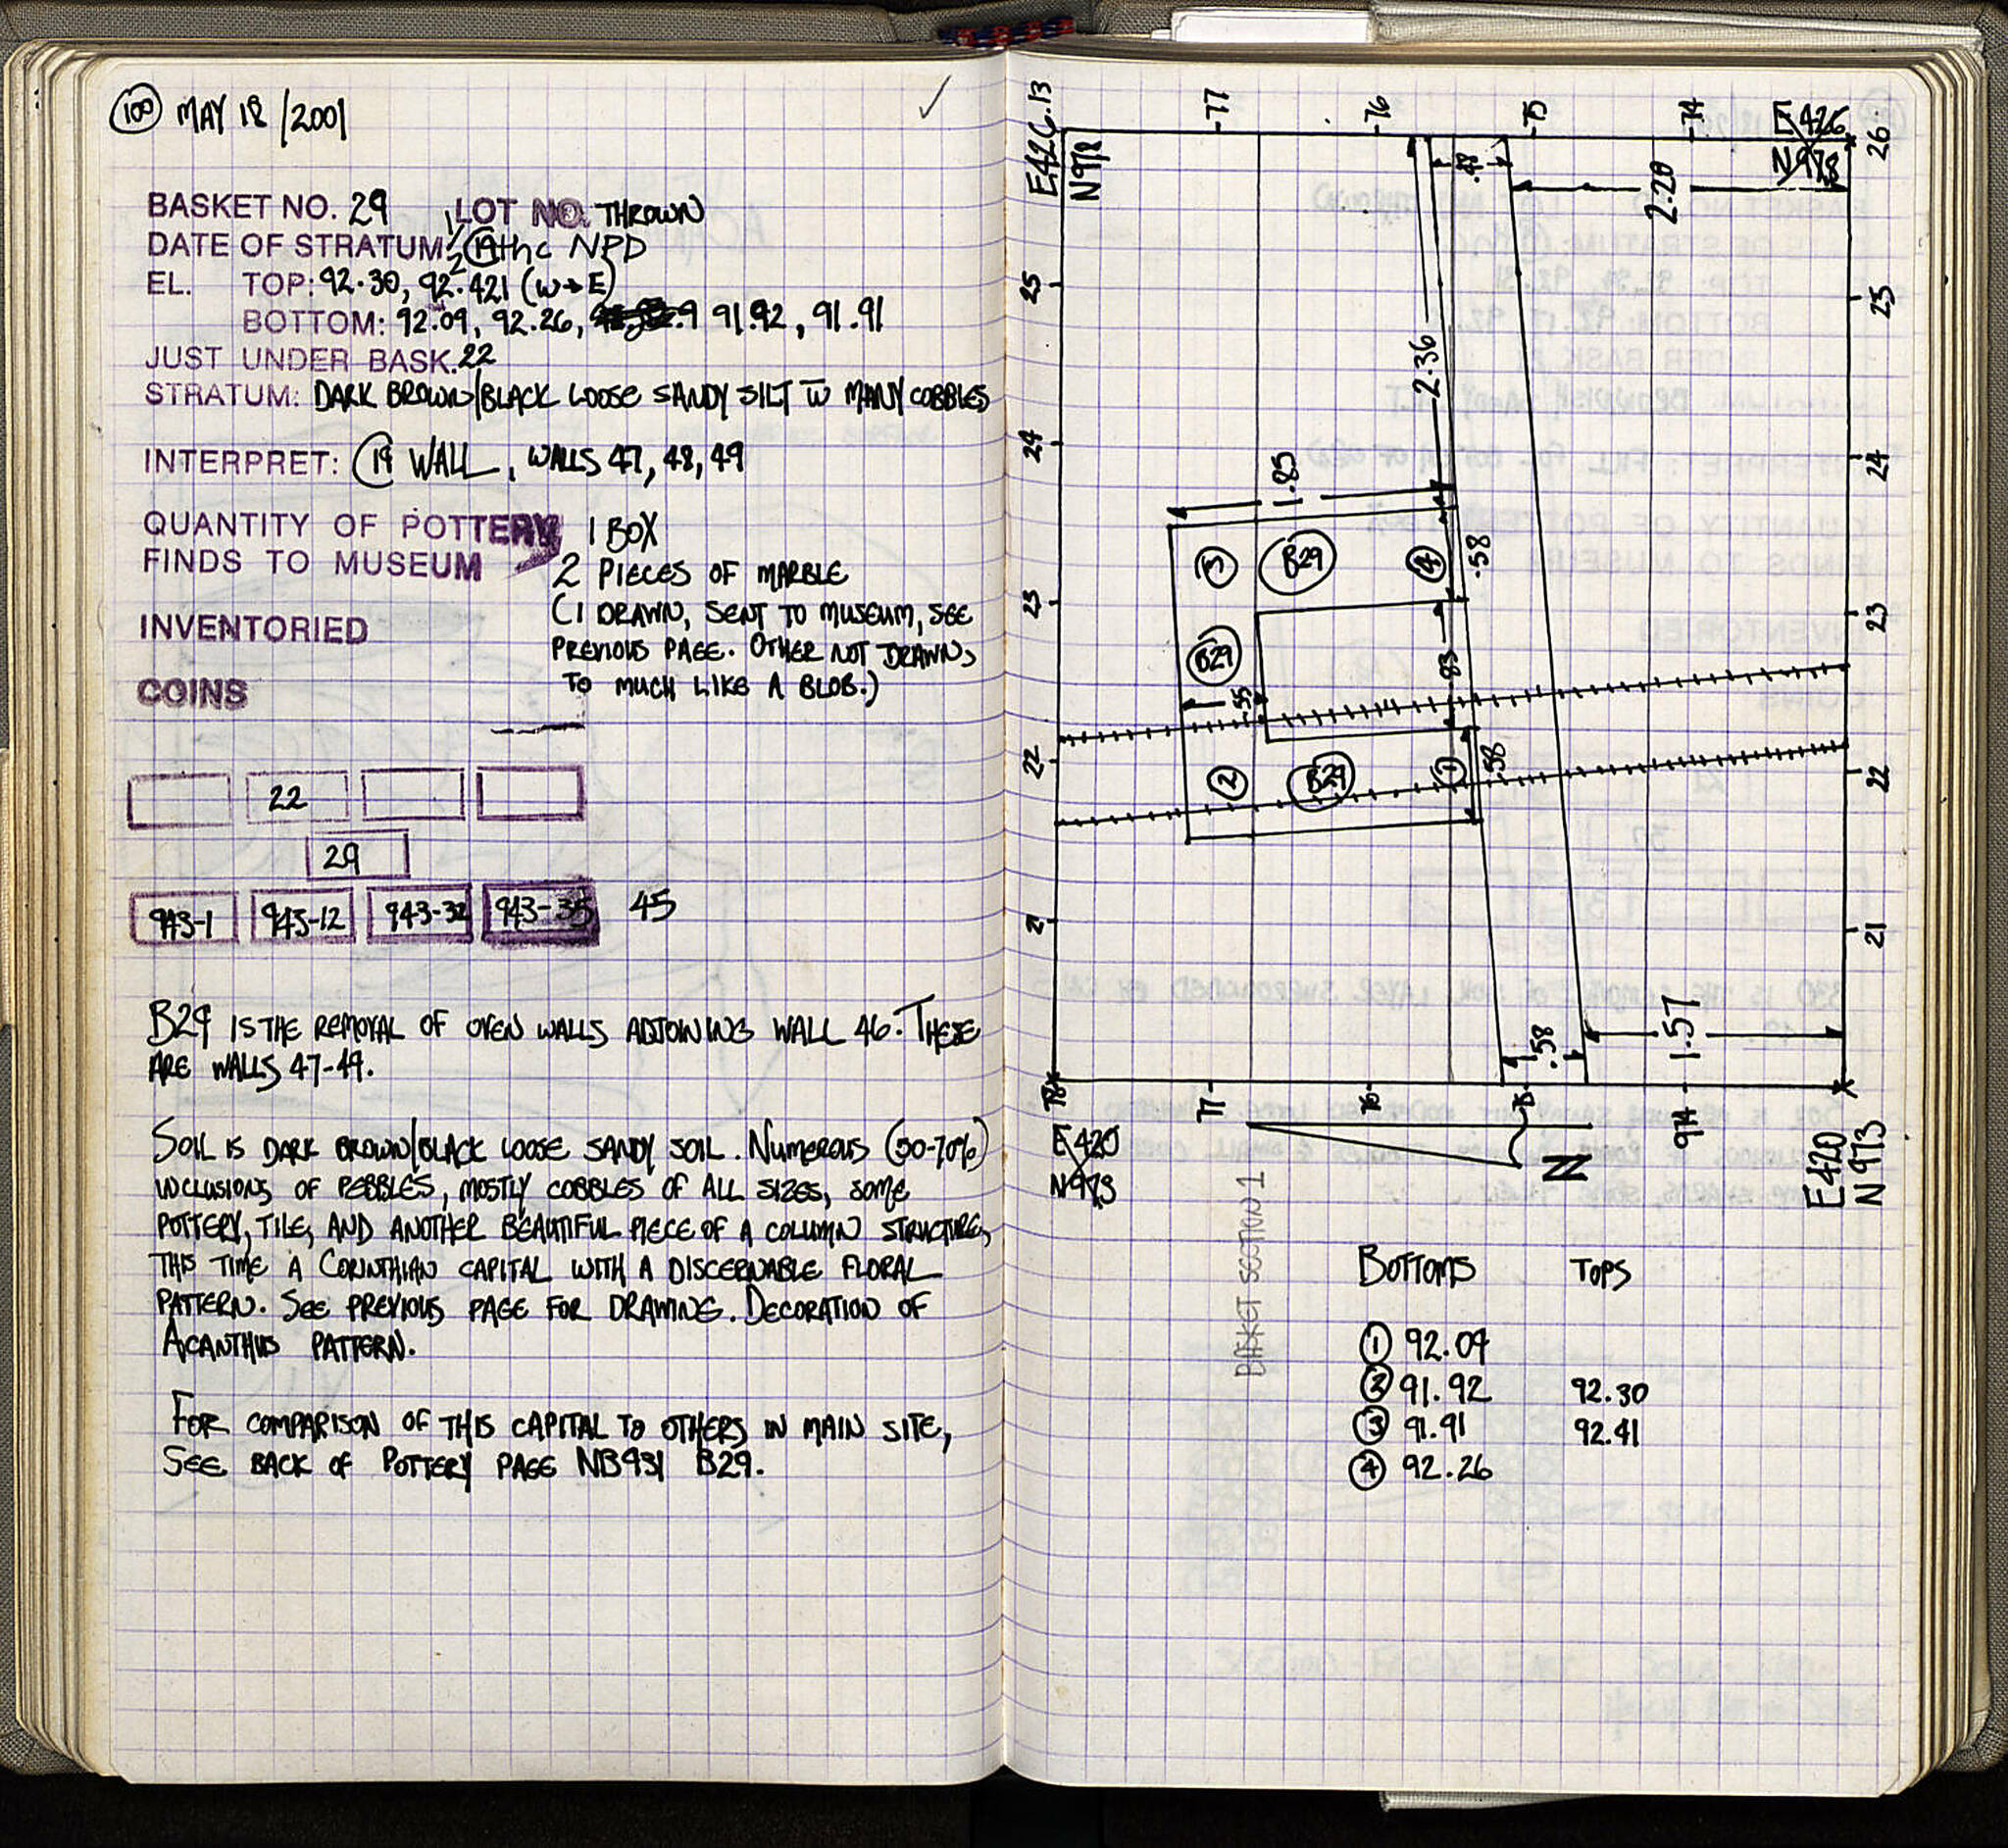 100 MAY 18/2001
BASKET NO. 29 LOT NO. THROWN
DATE OF STRATUM: 1/2 19thc NPD
EL. TOP: 92.30, 92.421 (W→E)
BOTTOM: 92.09, 92.26, 91.92, 91.91
JUST UNDER BASK. 22
STRATUM: DARK BROWN/BLACK LOOSE SANDY SILT W MANY COBBLES
INTERPRET: 19 WALL, WALLS 47, 48, 49
QUANTITY OF POTTERY 1 BOX
FINDS TO MUSEUM 2 PIECES OF MARBLE
(1 DRAWN, SENT TO MUSEUM, SEE
INVENTORIED PREVIOUS PAGE. OTHER NOT DRAWN,
COINS TO MUCH LIKE A BLOB.)
22
29
943-1 943-12 943-32 943-35 45
B29 IS THE REMOVAL OF OVEN WALLS ADJOINING WALL 46. THESE
ARE WALLS 47-49.
SOIL IS DARK BROWN/BLACK LOOSE SANDY SOIL. NUMEROUS (50-70%)
INCLUSIONS OF PEBBLES, MOSTLY COBBLES OF ALL SIZES, SOME
POTTERY, TILE, AND ANOTHER BEAUTIFUL PIECE OF A COLUMN STRUCTURE,
THIS TIME A CORINTHIAN CAPITAL WITH A DISCERNABLE FLORAL
PATTERN. SEE PREVIOUS PAGE FOR DRAWING. DECORATION OF
ACANTHUS PATTERN.
FOR COMPARISON OF THIS CAPITAL TO OTHERS IN MAIN SITE,
SEE BACK OF POTTERY PAGE NB931 B29.
E426.13
N978
77
76
75
74
E426
N973
26
25
25
24
24
23
23
22
22
21
21
.48
2.20
2.36
1.85
3
B29
4
.58
B29
.55
.93
2
B29
1
.58
.58
1.57
78
77
76
75
974
E420
N978
N
E420
N973
BASKET SECTION 1
BOTTOMS TOPS
1 92.09
2 91.92 92.30
3 91.91 92.41
4 92.26